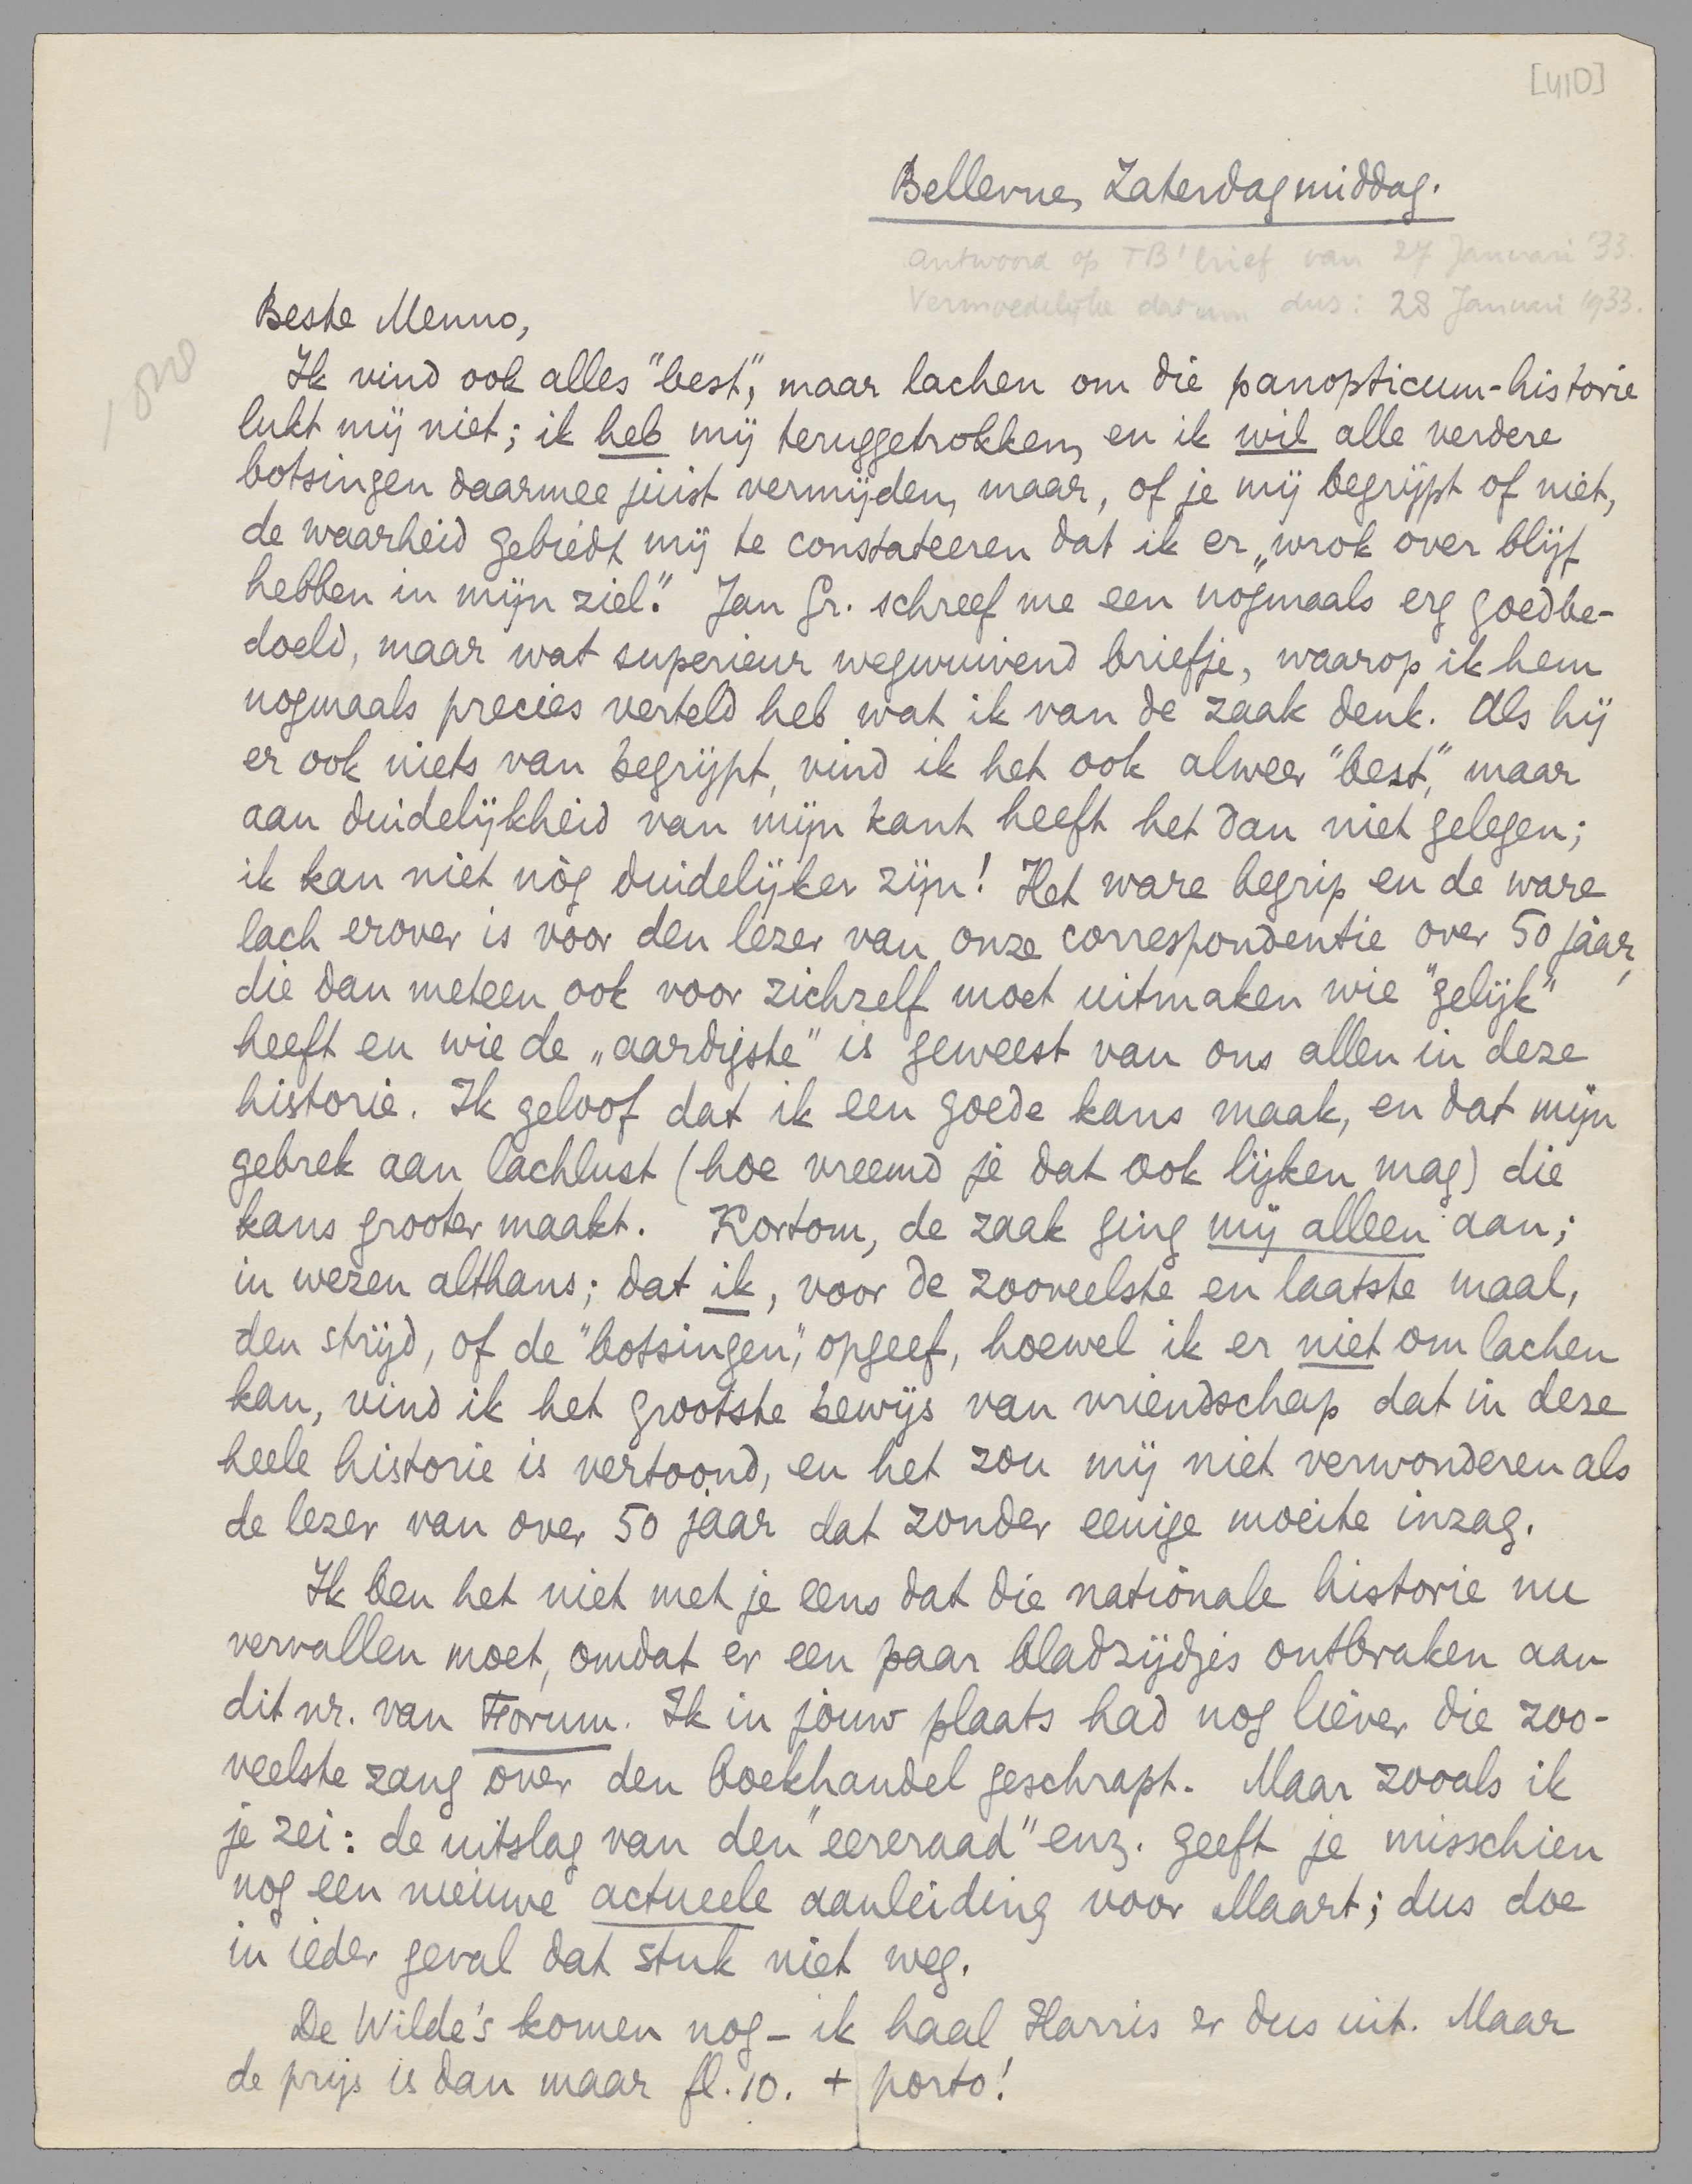 [410]
Bellevue, Zaterdagmiddag.
Antwoord op TB's brief van 27 Januari '33.
Vermoedelijke datum dus: 28 Januari 1933.
Beste Menno,
Ik vind ook alles "best", maar lachen om die panopticum-historie
lukt mij niet; ik heb mij teruggetrokken, en ik wil alle verdere
botsingen daarmee juist vermijden, maar, of je mij begrijpt of niet,
de waarheid gebiedt mij te constateeren dat ik er „wrok over blijf
hebben in mijn ziel". Jan Gr. schreef me een nògmaals erg goedbe-
doeld, maar wat superieur wegwuivend briefje, waarop ik hem
nogmaals precies verteld heb wat ik van de zaak denk. Als hij
er ook niets van begrijpt, vind ik het ook alweer "best", maar
aan duidelijkheid van mijn kant heeft het dan niet gelegen;
ik kan niet nòg duidelijker zijn! Het ware begrip en de ware
lach erover is voor den lezer van onze correspondentie over 50 jaar,
die dan meteen ook voor zichzelf moet uitmaken wie "gelijk"
heeft en wie de „aardigste" is geweest van ons allen in deze
historie. Ik geloof dat ik een goede kans maak, en dat mijn
gebrek aan lachlust (hoe vreemd je dat ook lijken mag) die
kans grooter maakt. Kortom, de zaak ging mij alleen aan;
in wezen althans; dat ik, voor de zooveelste en laatste maal,
den strijd, of de "botsingen", opgeef, hoewel ik er niet om lachen
kan, vind ik het grootste bewijs van vriendschap dat in deze
heele historie is vertoond, en het zou mij niet verwonderen als
de lezer van over 50 jaar dat zonder eenige moeite inzag.
Ik ben het niet met je eens dat die nationale historie nu
vervallen moet, omdat er een paar bladzijdjes ontbraken aan
dit nr. van Forum. Ik in jouw plaats had nog liever die zoo-
veelste zang over den boekhandel geschrapt. Maar zooals ik
je zei: de uitslag van den "eereraad" enz. geeft je misschien
nog een nieuwe actueele aanleiding voor Maart; dus doe
in ieder geval dat stuk niet weg.
De Wilde's komen nog – ik haal Harris er dus uit. Maar
de prijs is dan maar fl. 10. + porto!